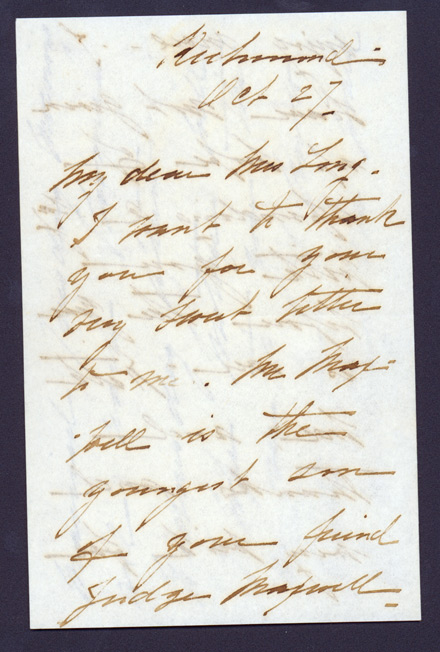 Richmond
Oct 27
My dear Mrs Long.
I want to thank
you for your
very sweet letter
to me. Mr Max-
well is the
youngest son
of your friend
Judge Maxwell